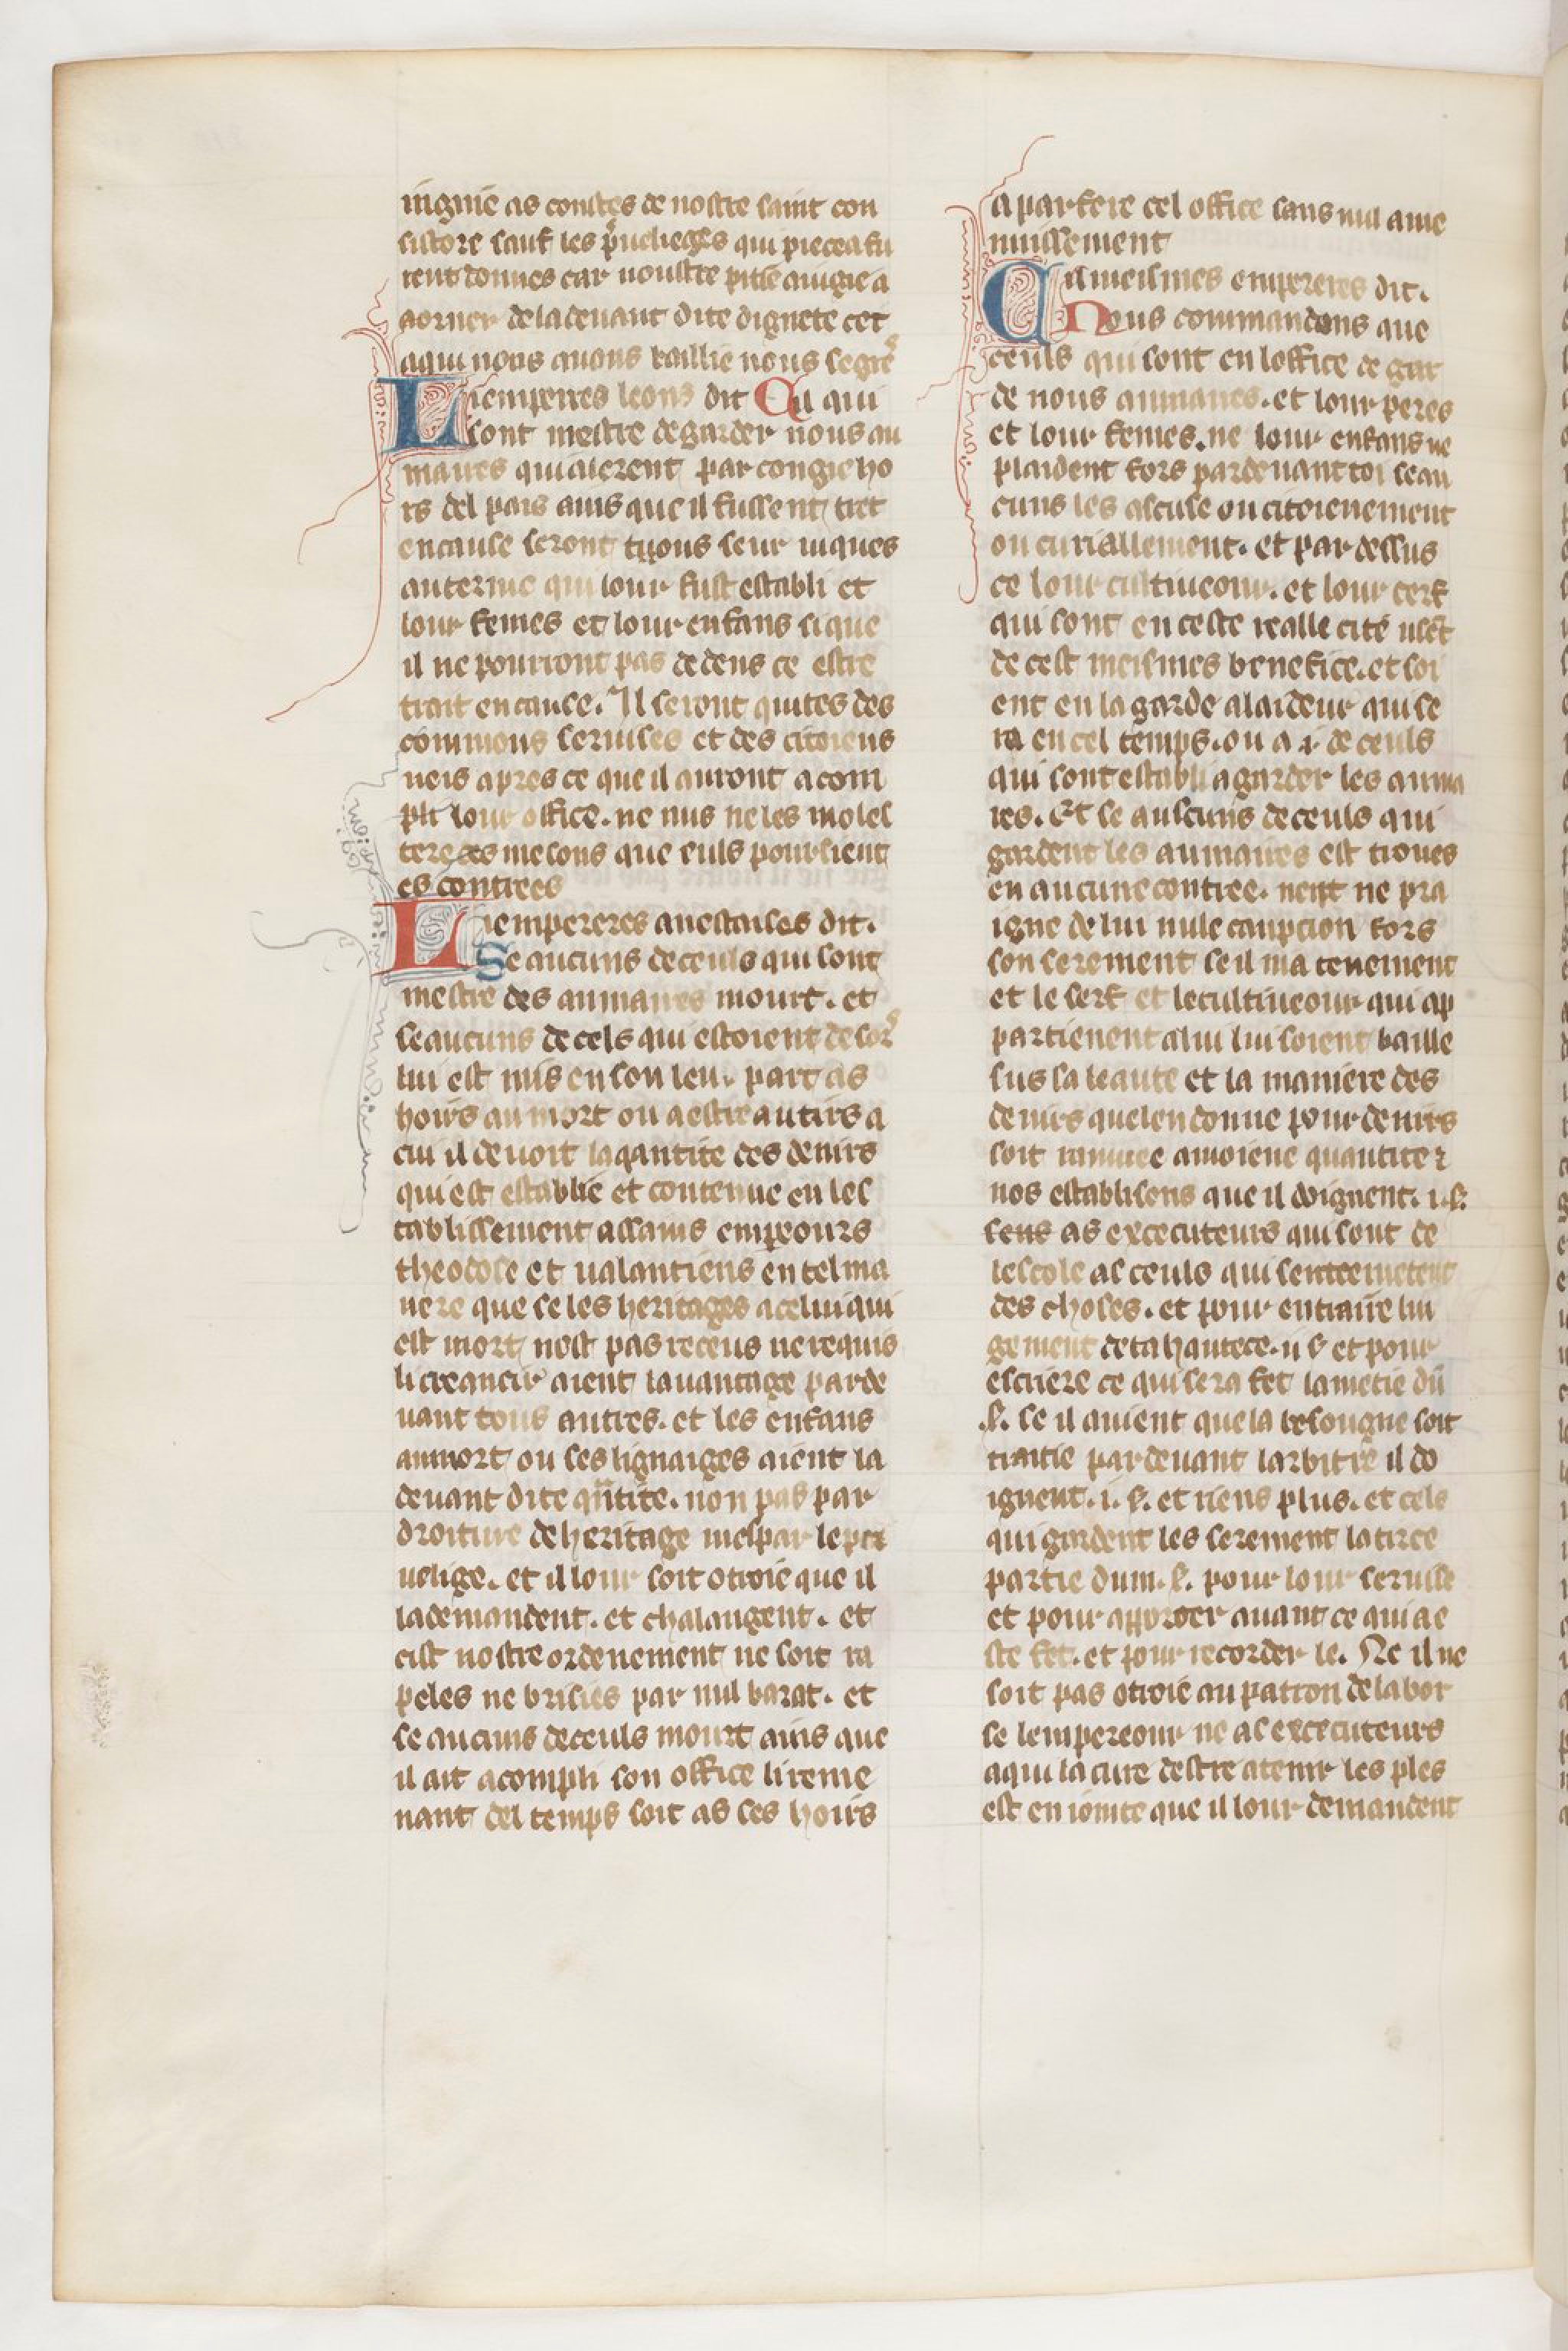 ingnie as contes de nostre saint con
sistore sauf les p̾uelieges qui pieca fu
rent donnes car noustre pitie auigie a
aorner de la deuant dite dignete cet
a qui nous auons baillie nous segre᷒
Li emperres leons dit Cil qui
sont mestre de garder nous au
maires qui alerent par congie ho
rs del pais ains que il fussent tret
en cause seront tuous seur iuques
au terme qui lour fust establi et
lour femes et lour enfans si que
il ne pourront pas dedens ce estre
trait en cause. Il seront quites des
commons seruises et des citoiens
neis apres ce que il auront acom
pli lour office. ne nus ne les moles
tere es mesons que euls poursient
es contrees
Li empereres anestaises dit.
Se aucuns de ceuls qui sont
mestre des aumaires mourt. et
se aucuns de cels qui estoient desor᷒
lui est mis en son leu. part as
hoirs au mort ou a estre autirs a
cui il deuoit la qantite des denirs
qui est establie et contenue en les
tablissement assains empeours
theodose et ualantiens en tel ma
nere que se les heritages a celui qui
est mort nest pas receus ne requis
li creancir aient lauantage parde
uant tous autres. et les enfans
au mort ou ses lignaiges aient la
deuant dite qntite. non pas par
droiture de heritage mes par le pri
uelige. et il lour soit otroie que il
la demandent. et chalangent. et
cist nostre ordenement ne soit ra
peles ne brisies par nul barat. et
se aucuns de ceuls mourt ains que
il ait acompli son office li reme
nant del temps soit as ses hoirs
a parfere cel office sans nul ame
nuissement
Cil meismes empereres dit.
Nous commandons que
ceuls qui sont en loffice de gar
de nous aumaires. et lour peres
et lour femes. ne lour enfans ne
plaident fors par deuant toi se au
cuns les ascuse ou citoienement
ou curiallement. et par dessus
ce lour cultiueour. et lour cerf
qui sont en ceste realle cite usēt
de cest meismes benefice. et soi
ent en la garde a lardeur qui se
ra en cel temps. ou a .i. de ceuls
qui sont establi a garder les auma
res. Et se auscuns de ceuls qui
gardent les aumaires est troues
en aucune contree. nent ne pra
igne de lui nule caupcion fors
son serement se il ma tenement
et le serf et le cultiueour qui ap
partienent a lui lui soient baille
sus sa leaute et la maniere des
denirs que len donne pour denirs
soit ramuee a moiene quantite ⁊
nos establisons que il doignent. i. s.
sens as excecuteurs qui sont de
lescole as ceuls qui sentremetent
des choses. et pour entraire lui
gement de ta hautece. ii s et pour
escriere ce qui sera fet la metie du
.s. se il auient que la besougne soit
traitie par deuant larbitre il do
ignent. i. s. et riens plus. et cels
qui gardent les serement la tirce
partie dum. s. pour lour seruise
et pour apporter auant ce qui a e
ste fet. et pour recorder le. Ne il ne
soit pas otroie au patron de la bor
se lempereour ne as excecuteurs
a qui la cure destre atenir les ples
est en iointe que il lour demandent